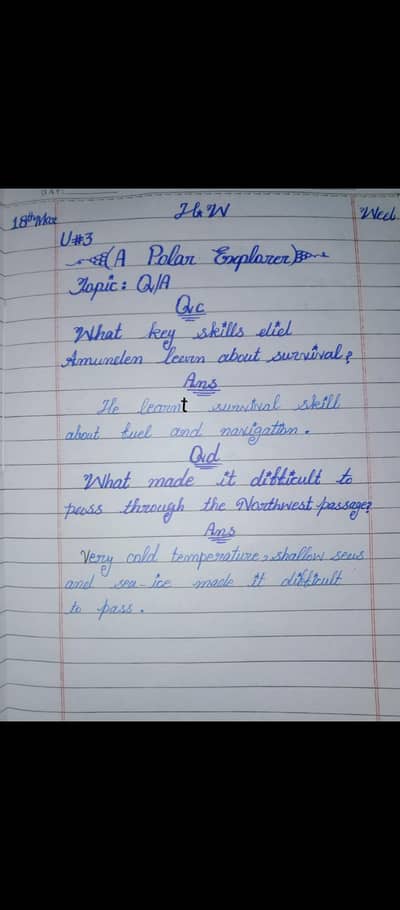 DAY:
18th Mar
H.W
Wed
U#3
(A Polar Explorer)
Topic: Q/A
Q.c
What key skills did
Amunden learn about survival?
Ans
He learnt survival skill
about fuel and navigation.
Q.d
What made it difficult to
pass through the Northwest passage?
Ans
Very cold temperature, shallow seas
and sea-ice made it difficult
to pass.